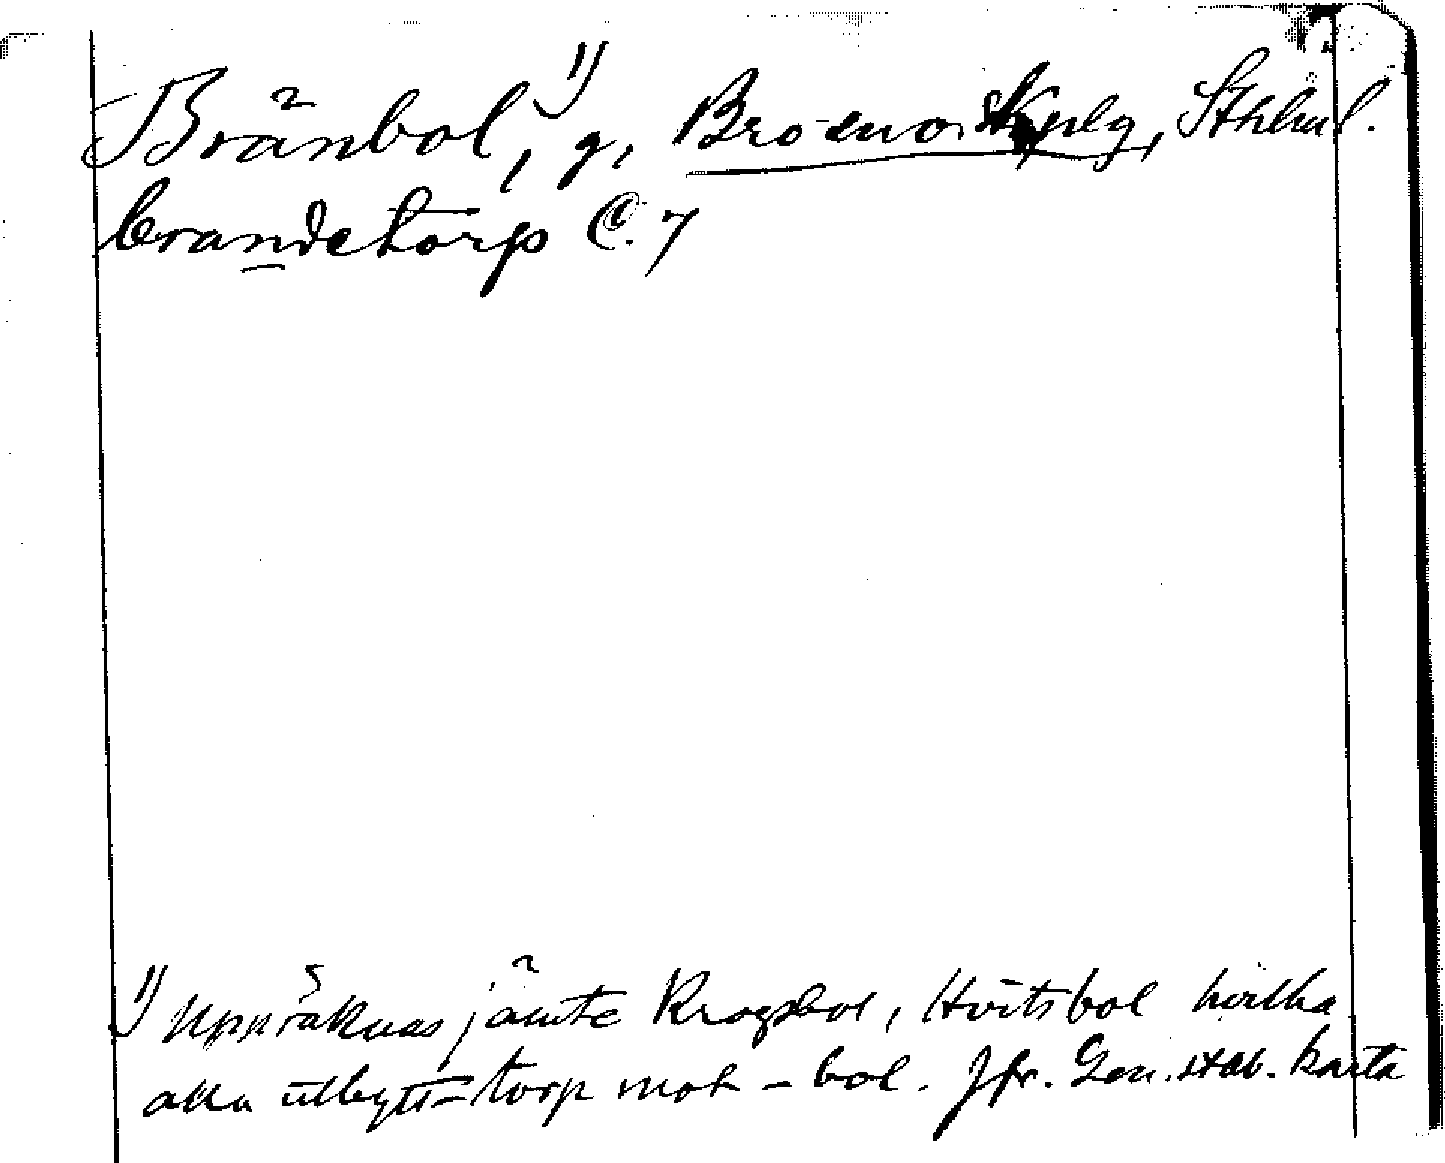 Bränbol,¹⁾ g, Brosna Skplg, Sthlm l.
brandetorp C. 7
¹⁾ Uppräknas jämte Kragsbol, Hvitsbol hvilka
alla utbytt -torp mot -bol. Jfr. Gen. stab. karta